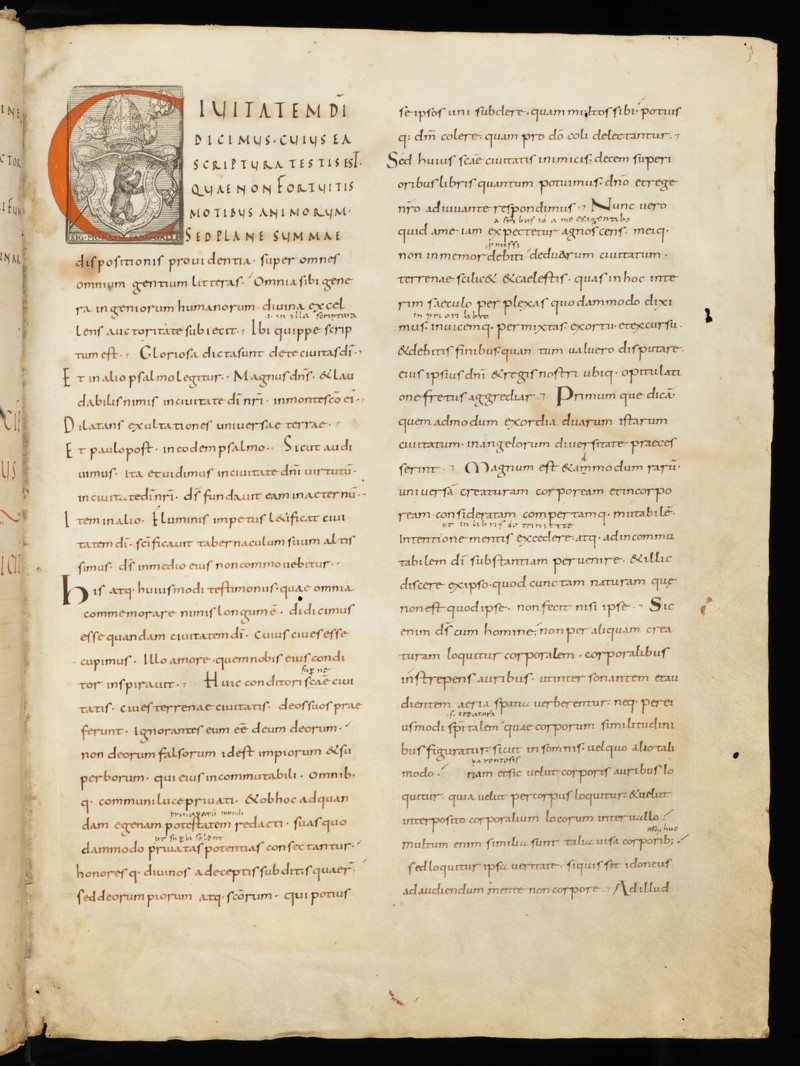 C IUITATEM DĪ
DICIMUS · CUIUS EA
SCRIPTURA TESTIS EST̄ ·
QUAE NON FORTUITIS
MOTIBUS ANIMORUM ·
SED PLANE SUMMAE
SIG. MONAST. SANC. GALLI
dispositionis proui dentia · super omnes
omnium gentium litteras · Omnia sibi gene
ra ingeniorum humanorum · diuina excel
s. in illa scriptura
lens auctoritate subiecit · Ibi quippe scrip
tum est · Gloriosa dicta sunt de te ciuitas dī ·
Et in alio psalmo legitur · Magnus dn̄s · & lau
dabilis nimis in ciuitate dī nr̄i · in monte sc̄o ei ·
Dilatans exultationes uniuersae terrae ·
Et paulo post · in eodem psalmo · Sicut audi
uimus · ita et uidimus in ciuitate dn̄i uirtutū ·
in ciuitate dī nr̄i · ds̄ fundauit eam in aeternū ·
Item in alio · Fluminis impetus l&ificat ciui
tatem dī · sc̄ificauit tabernaculum suum altis
simus · ds̄ in medio eius non commouebitur ·
his atq· huiusmodi testimoniis · quae omnia
commemorare nimis longum ē · didicimus
esse quandam ciuitatem dī · Cuius ciues esse
cupimus · Illo amore · quem nobis eius condi
tor inspirauit · Huic conditori sc̄ae ciui
tatis · ciues terrenae ciuitatis · deos suos prae
ferunt · Ignorantes eum eē deum deorum ·
non deorum falsorum id est impiorum & su
perborum · qui eius incommutabili · omnib·
q· communi luce priuati · & ob hoc ad quan
dam egenam potestatem redacti · suas quo
ut superbi solent
dammodo priuatas potentias consectantur ·
honores q· diuinos a deceptis subditis quaer̄ ·
sed deorum piorum atq· sc̄orum · qui potius
se ipsos uni subdere · quam multos sibi · potius
q· dm̄ colere · quam pro dō coli delectantur ·
Sed huius sc̄ae ciuitatis inimicis · decem superi
oribus libris quantum potuimus · dn̄o et rege
nr̄o adiuuante respondimus · Nunc uero
quid a me iam expectetur agnoscens · mei q·
p̄missi
non inmemor debiti · de duarum ciuitatum ·
terrenae scilic& & caelestis · quas in hoc inte
rim saeculo perplexas quodammodo dixi
in priori libro
mus · inuicem q· permixtas · exortu · et excursu ·
& debitis finibus · quantum ualuero disputare ·
eius ipsius dn̄i & regis nostri ubiq· opitulati
one fretus aggrediar · Primum que dicā
quem admodum exordia duarum istarum
ciuitatum · in angelorum diuersitate praeces
serint · Magnum est & ammodum rarū ·
uniuersā creaturam corpoream et incorpo
ream consideratam compertam q· mutabilē ·
ut in libris de trinitate
Intentione mentis excedere · atq· ad incommu
tabilem dī substantiam peruenire · & illic
discere ex ipso · quod cunctam naturam que
non est quod ipse · non fecit nisi ipse · Sic
enim ds̄ cum homine · non per aliquam crea
turam loquitur corporalem · corporalibus
instrepens auribus · ut inter sonantem et au
dientem aeria spatia uerberentur · neq· per ei
s. creaturā
usmodi spītalem quae corporum similitudini
bus figuratur · sicut in somnis · uel quo alio tali
modo · nam et sic uelut corporis auribus lo
quitur · quia uelut per corpus loquitur · & uelut
interposito corporalium locorum interuallo ·
multum enim similia sunt talia uisa corporib· ·
sed loquitur ipsa ueritate · si quis sit idoneus
ad audiendum mente non corpore · Ad illud